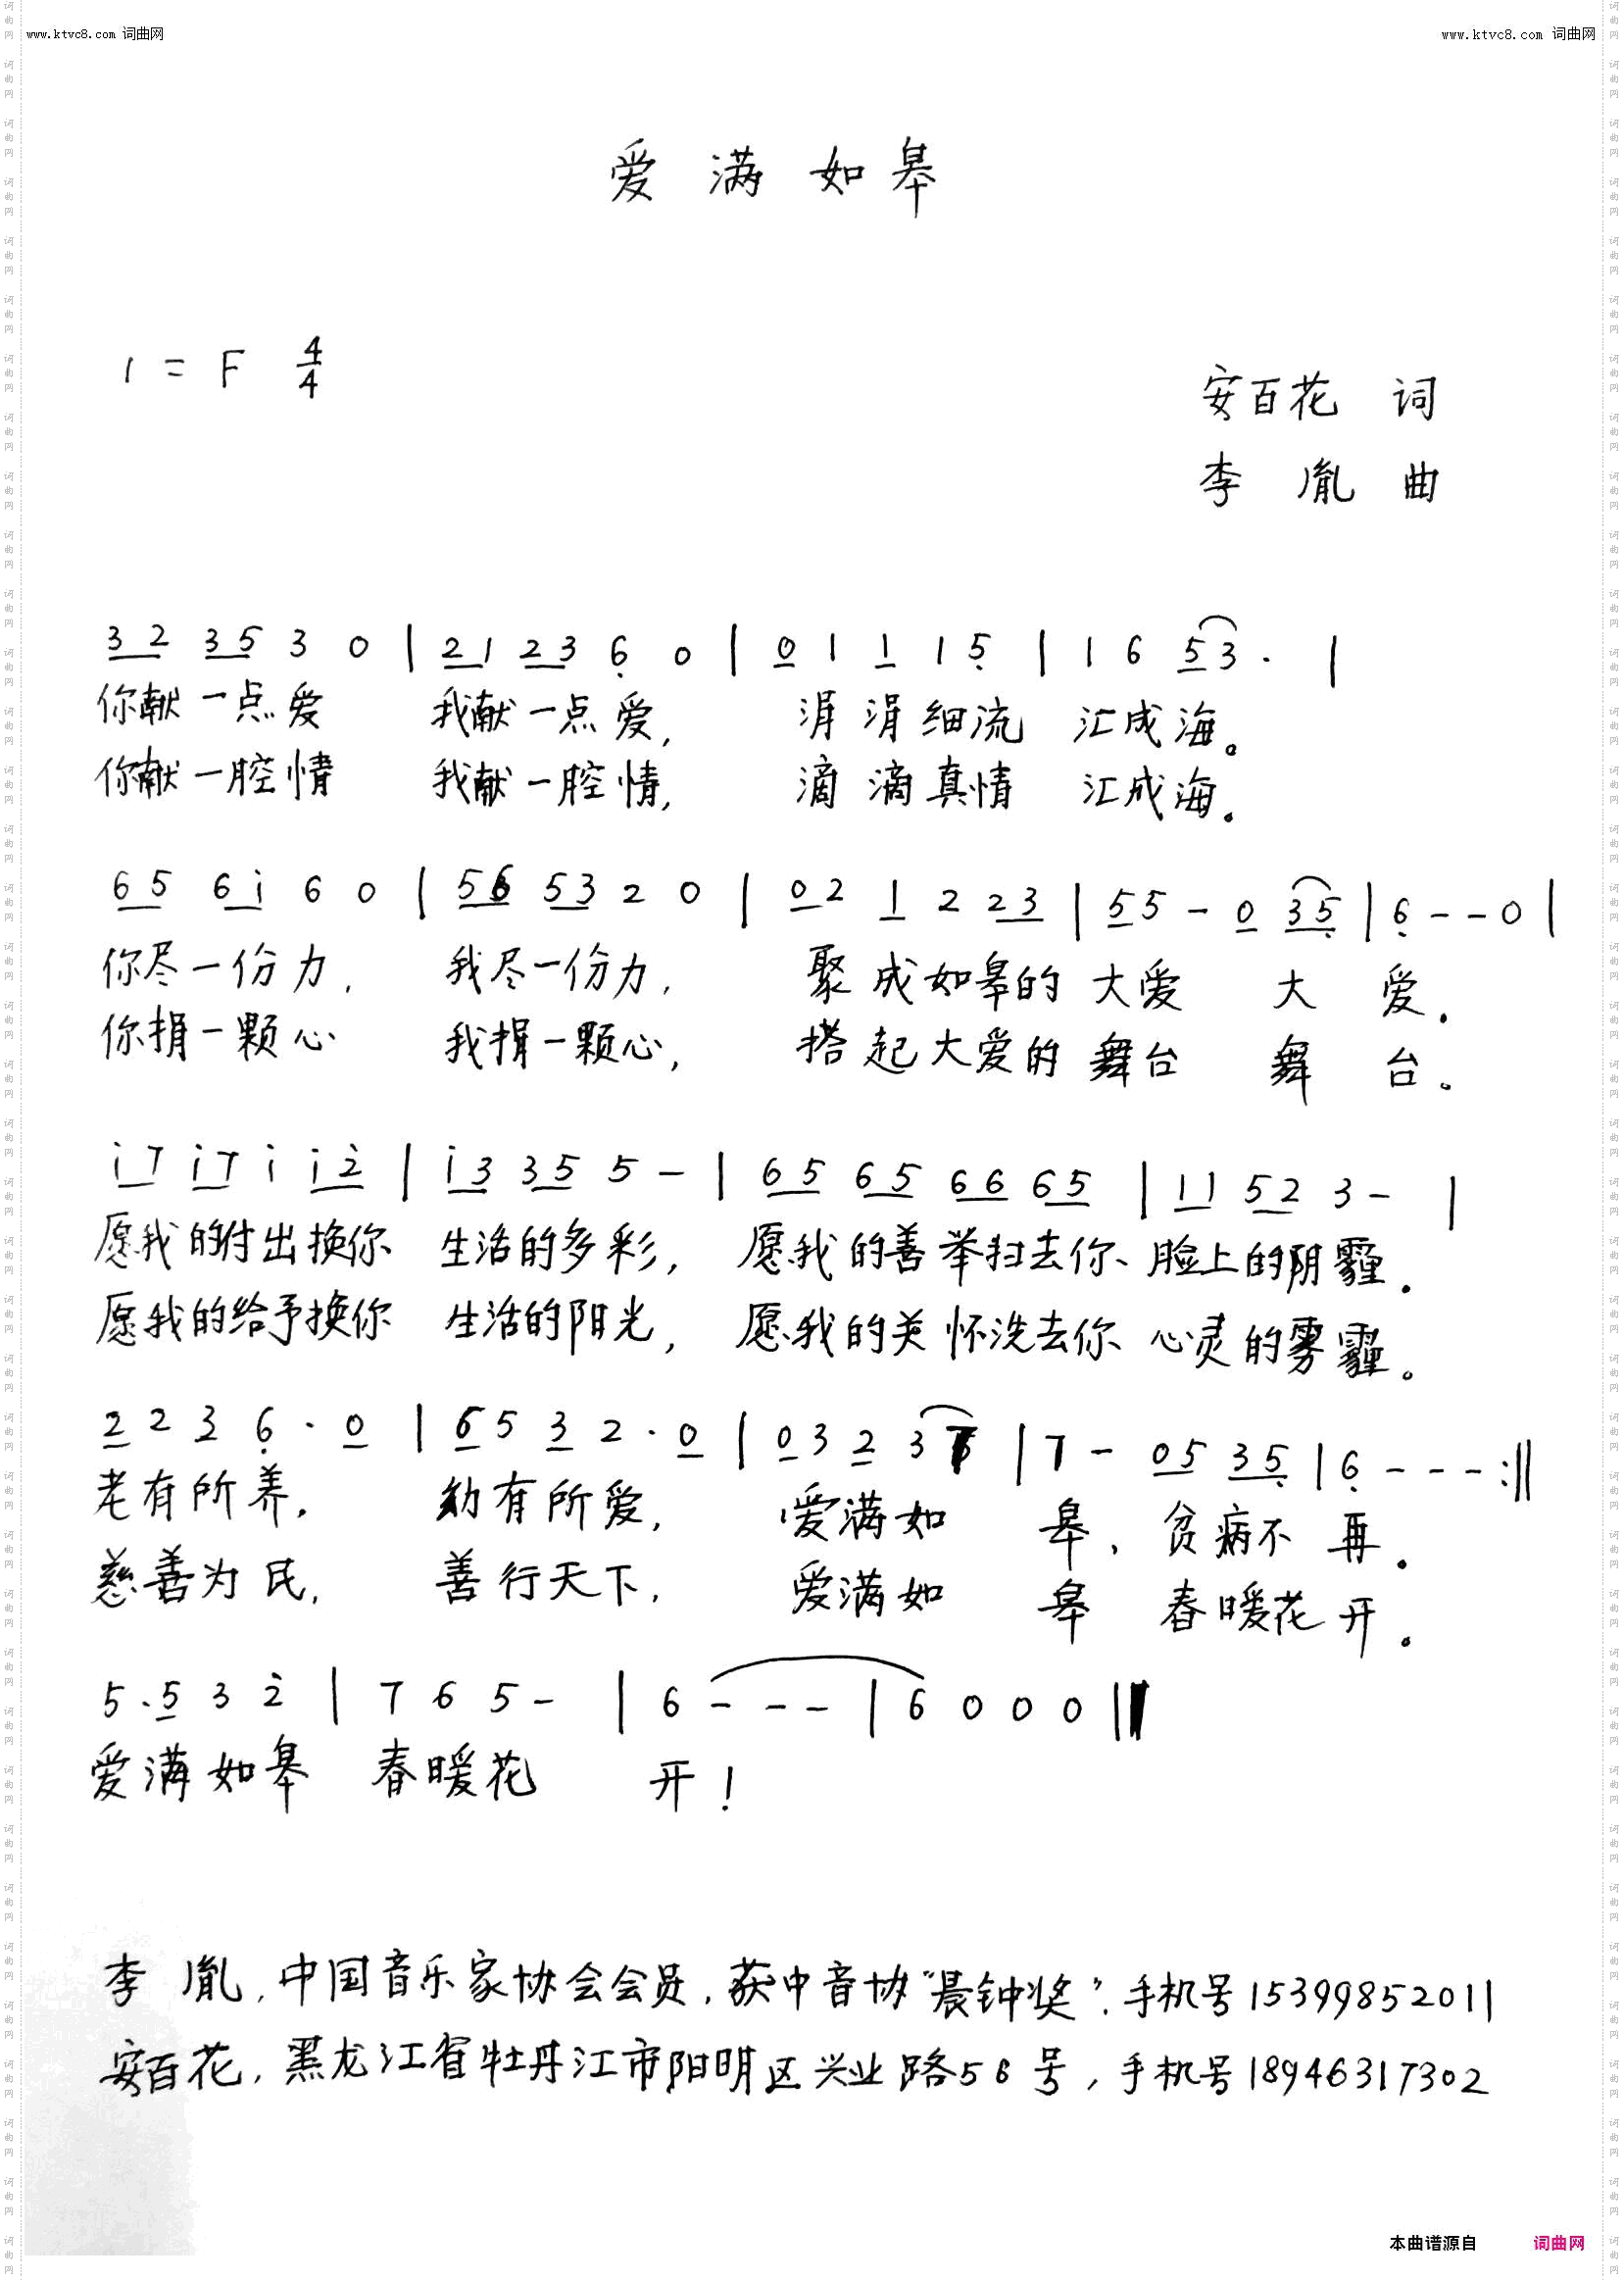 www.ktvc8.com 词曲网 www.ktvc8.com 词曲网
爱 满 如 皋
1 = F 4/4
安百花 词
李 胤 曲
3 2 3 5 3 0 | 2 1 2 3 6̣ 0 | 0 1 1 1 5̣ | 1 6 5 3 · |
你献一点爱 我献一点爱, 涓涓细流 汇成海。
你献一腔情 我献一腔情, 滴滴真情 汇成海。
6 5 6 i 6 0 | 5 6 5 3 2 0 | 0 2 1 2 2 3 | 5 5 - 0 3 5̣ | 6̣ - - 0 |
你尽一份力, 我尽一份力, 聚成如皋的 大爱 大 爱.
你捐一颗心 我捐一颗心, 搭起大爱的 舞台 舞 台。
i 7 i 7 i i 2̇ | i 3 3 5 5 - | 6 5 6 5 6 6 6 5 | 1 1 5 2 3 - |
愿我的付出换你 生活的多彩, 愿我的善举扫去你、脸上的阴霾.
愿我的给予换你 生活的阳光, 愿我的关怀洗去你 心灵的雾霾。
2 2 3 6̣ · 0 | 6 5 3 2 · 0 | 0 3 2 3 | 7 - 0 5 3 5̣ | 6̣ - - - :||
老有所养, 幼有所爱, 爱满如 皋、贫病不 再.
慈善为民, 善行天下, 爱满如 皋 春暖花 开。
5 · 5 3 2̇ | 7 6 5 - | 6 - - - | 6 0 0 0 ||
爱满如皋 春暖花 开!
李 胤, 中国音乐家协会会员, 获中音协“晨钟奖”. 手机号15399852011
安百花, 黑龙江省牡丹江市阳明区兴业路56号, 手机号18946317302
本曲谱源自 词曲网